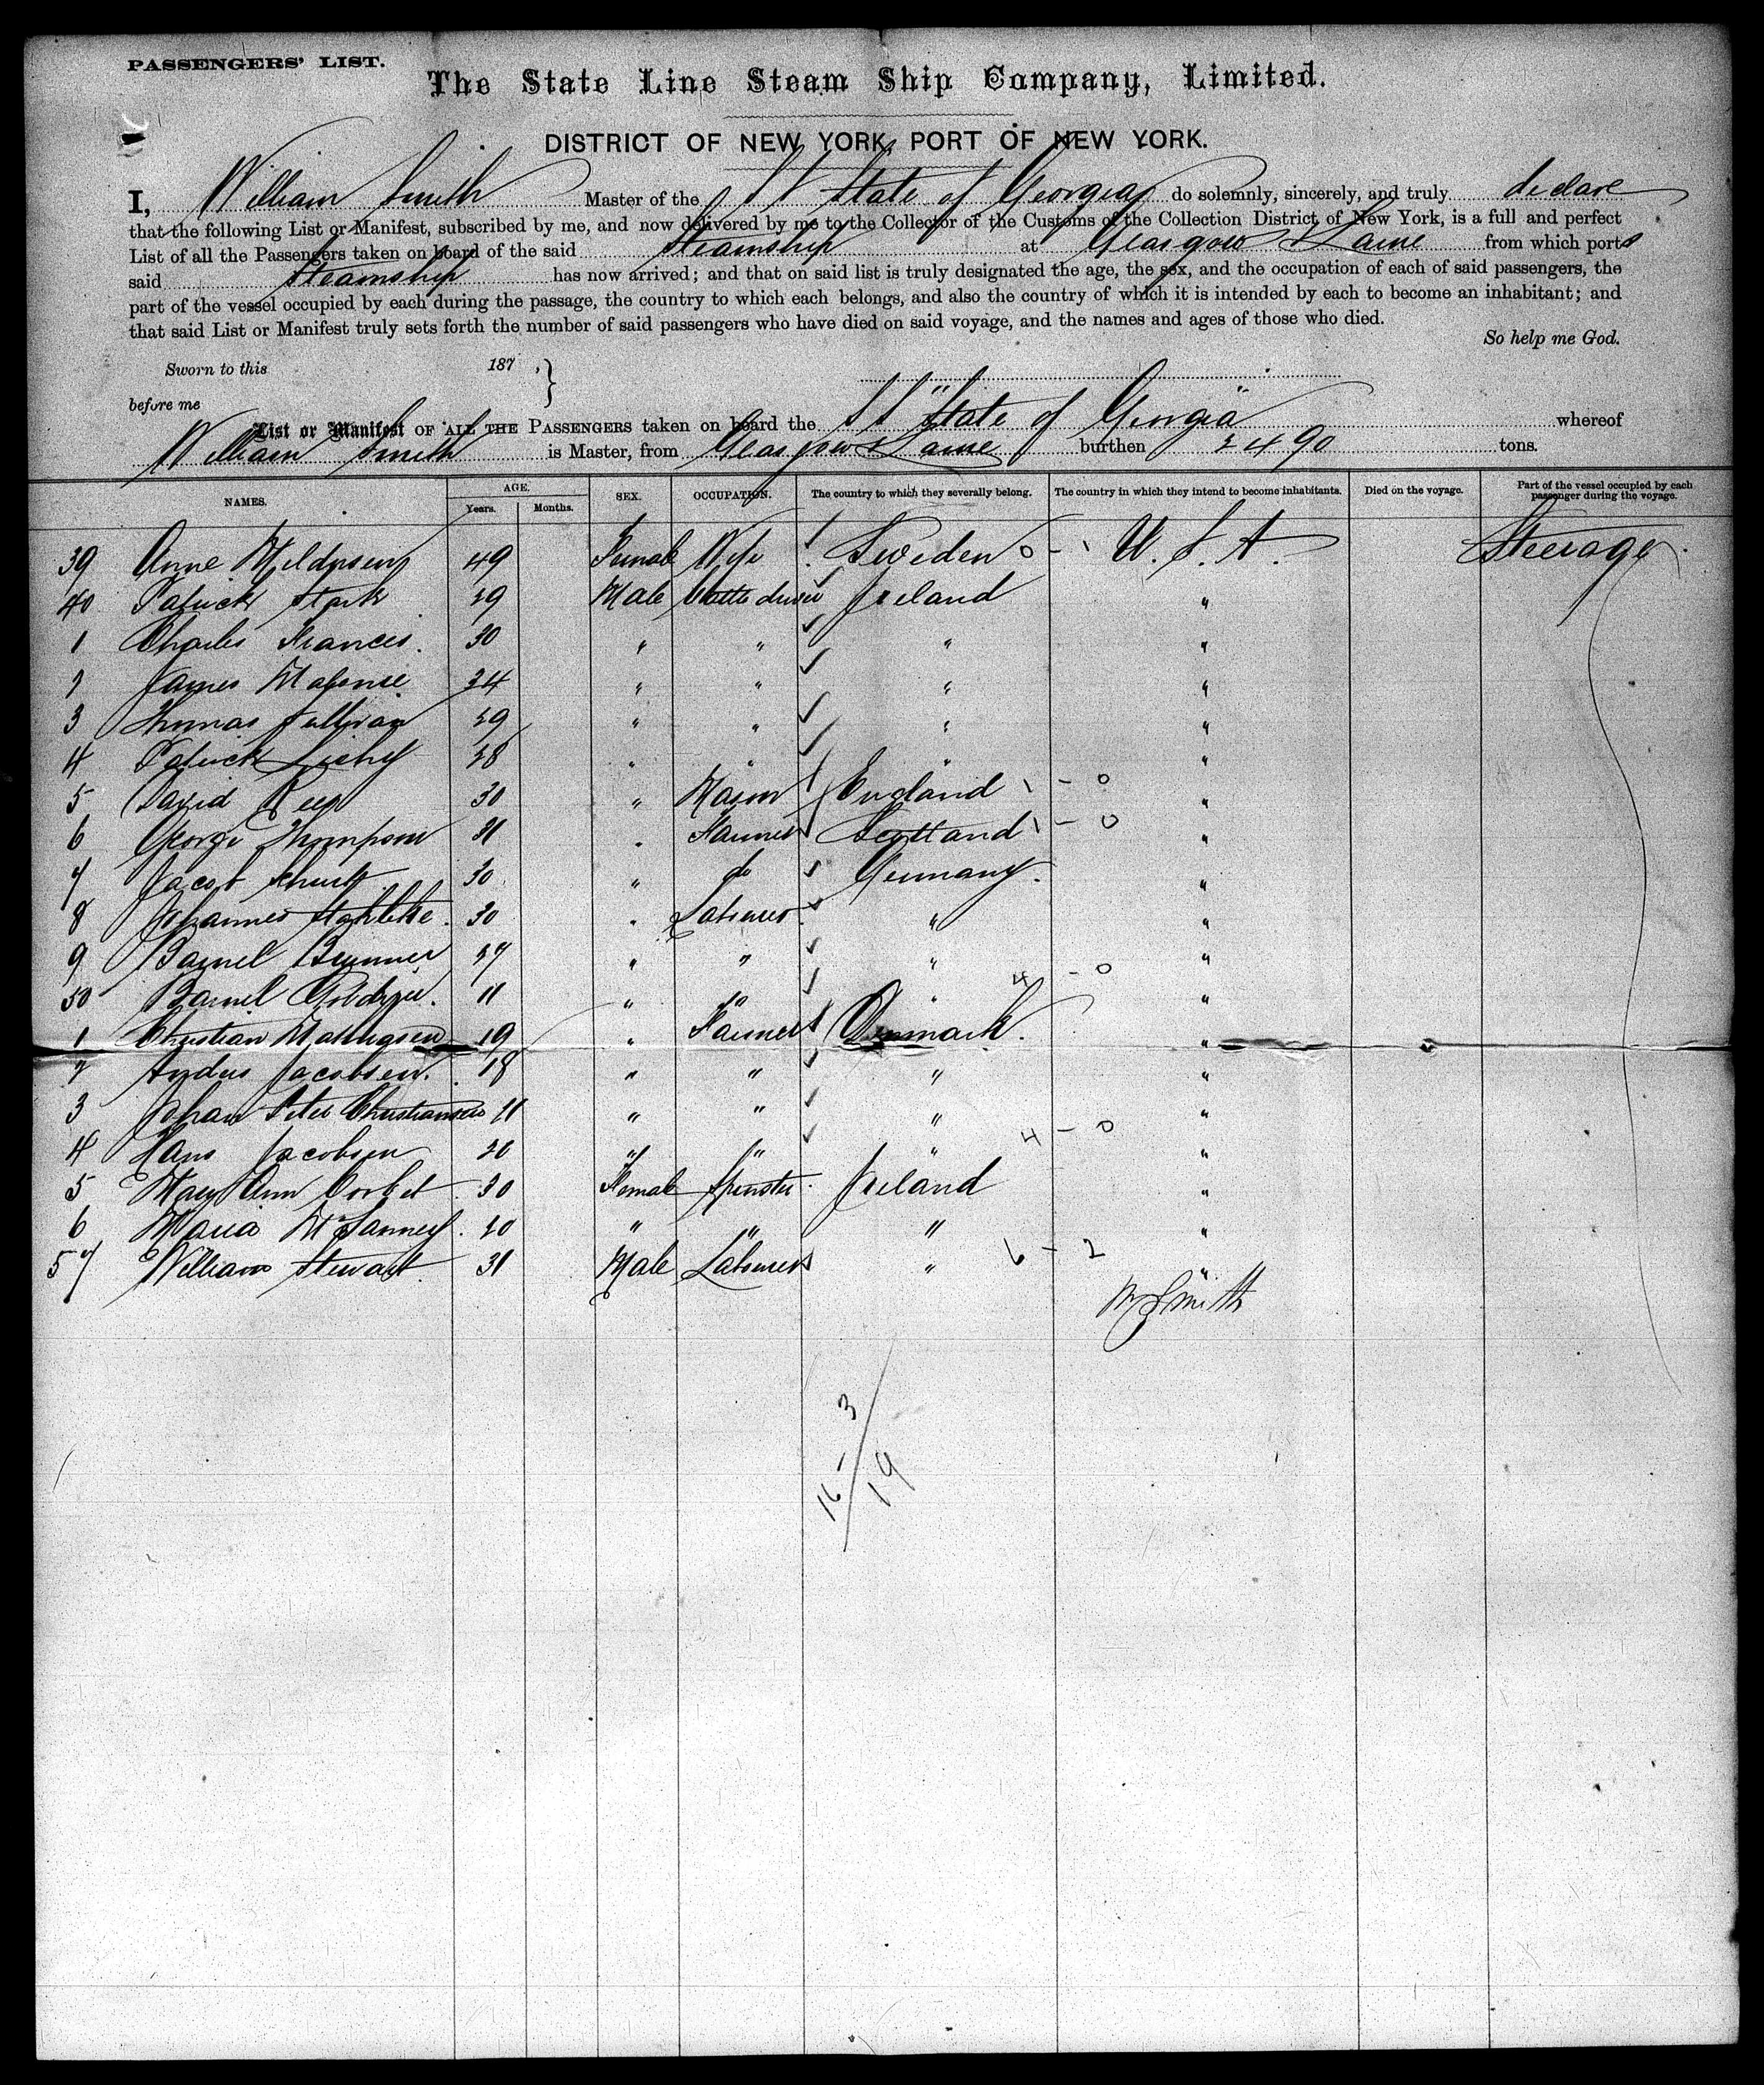 PASSENGERS' LIST.
The State Line Steam Ship Company, Limited.
DISTRICT OF NEW YORK, PORT OF NEW YORK.
I, William Smith Master of the SS State of Georgia do solemnly, sincerely, and truly declare
that the following List or Manifest, subscribed by me, and now delivered by me to the Collector of the Customs of the Collection District of New York, is a full and perfect
List of all the Passengers taken on board of the said Steamship at Glasgow & Larne from which ports
said Steamship has now arrived; and that on said list is truly designated the age, the sex, and the occupation of each of said passengers, the
part of the vessel occupied by each during the passage, the country to which each belongs, and also the country of which it is intended by each to become an inhabitant; and
that said List or Manifest truly sets forth the number of said passengers who have died on said voyage, and the names and ages of those who died.
So help me God.
Sworn to this 187 , }
before me
List or Manifest OF ALL THE PASSENGERS taken on board the SS "State of Georgia" whereof
William Smith is Master, from Glasgow & Larne burthen 2490 tons.
NAMES. AGE. SEX. OCCUPATION. The country to which they severally belong. The country in which they intend to become inhabitants. Died on the voyage. Part of the vessel occupied by each passenger during the voyage.
Years. Months.
39 Anne 49 Female Wife Sweden 0 - 1 U.S.A. Steerage
40 Patrick Stark 29 Male Cattle driver Ireland "
1 Charles Francis 30 " " " "
2 James 24 " " " "
3 Thomas Sullivan 29 " " " "
4 Patrick 28 " " " "
5 David Rees 30 " Mason England 1 - 0 "
6 George Thompson 31 " Farmer Scotland 1 - 0 "
7 Jacob 30 " do Germany. "
8 Johannes 30 " Labourer " "
9 27 " " " "
50 11 " " " 4 - 0 "
1 Christian 19 " Farmer Denmark. "
2 Jacobsen. 18 " " " "
3 Johan Peter Christiansen 11 " " " "
4 Hans Jacobsen 20 " " " 4 - 0 "
5 Mary Ann Corbet 30 Female Spinster Ireland "
6 Maria 20 " " " "
57 William Stewart 31 Male Labourer " 6 - 2 "
W Smith
16 - 3
19